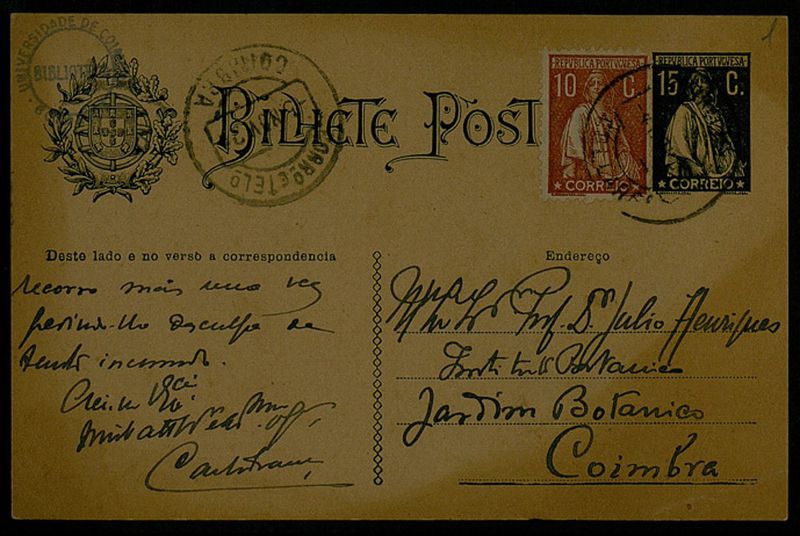 UNIVERSIDADE DE COIM
BIBLIOTE
1
COIMBRA
BILHETE POST
REPUBLICA PORTUGUESA
10 C.
CORREIO
REPUBLICA PORTUGUESA
15 C.
CORREIO
Deste lado e no verso a correspondencia
recorro mais uma vez
pedindo-lhe desculpa de
tanto incomodo.
Endereço
Prof. Dr Julio Henriques
Instituto Botanico
Jardim Botanico
Coimbra